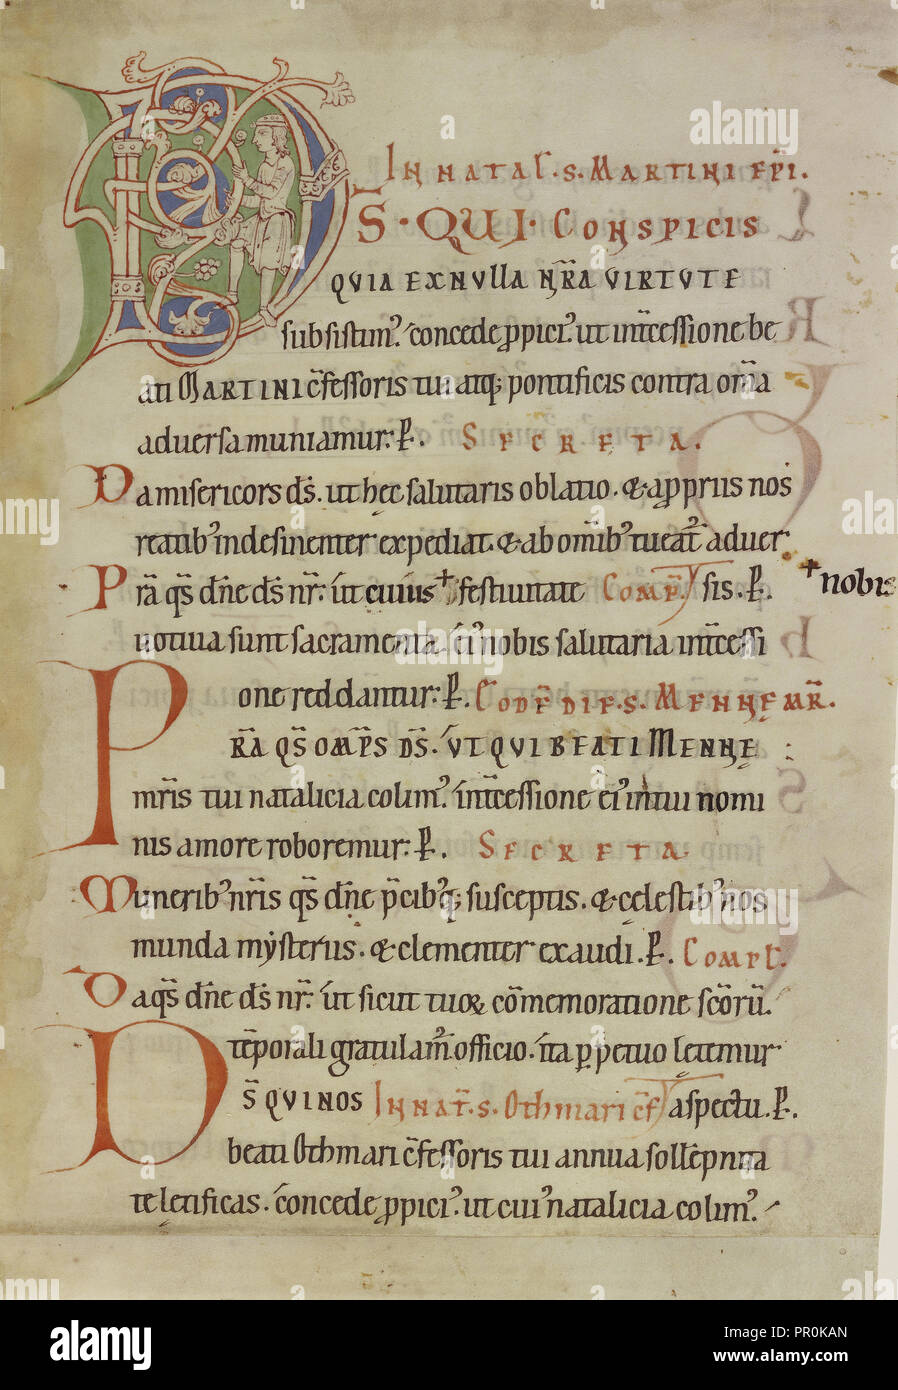 IN NATAL̄. S. MARTINI EP̄I.
S QUI CONSPICIS
QUIA EX NULLA NR̄A VIRTUTE
subsistimꝰ. concede ꝓpiciꝰ. ut int̄cessione be
ati MARTINI c̄fessoris tui atq; pontificis contra om̄a
aduersa muniamur. P̄. SECRETA.
Da misericors ds̄. ut hec salutaris oblatio. & a ꝓpriis nos
reatibꝰ indesinenter expediat. & ab om̄ibꝰ tueat̄ aduer
Pr̄a qs̄ dn̄e ds̄ nr̄. ut cuius ✝ festiuitate COMP̄ sis. P̄. ✝ nobis
uotiua sunt sacramenta. eiꝰ nobis salutaria int̄cessi
one reddantur. P̄. EODĒ DIE. S. MENNE MR̄.
PR̄A QS̄ OMP̄S DS̄. UT QUI BEATI MENNE
mr̄is tui natalicia colimꝰ. int̄cessione eiꝰ in tui nomi
nis amore roboremur. P̄. SECRETA
Muneribꝰ nr̄is qs̄ dn̄e p̄cibꝰq; susceptis. & celestibꝰ nos
munda mysteriis. & clementer exaudi. P̄. COMPL̄.
Da qs̄ dn̄e ds̄ nr̄. ut sicut tuoꝝ cōmemoratione sc̄orū.
tēporali gratulamꝰ officio. ita ꝑpetuo letemur
DS̄ QUI NOS IN NAT̄. S. Othmari c̄f aspectu. P̄.
beati Othmari c̄fessoris tui annua sollēpnita
te letificas. concede ꝓpiciꝰ. ut cuiꝰ natalicia colimꝰ.
alamy
alamy stock photo
Image ID: PR0KAN
www.alamy.com